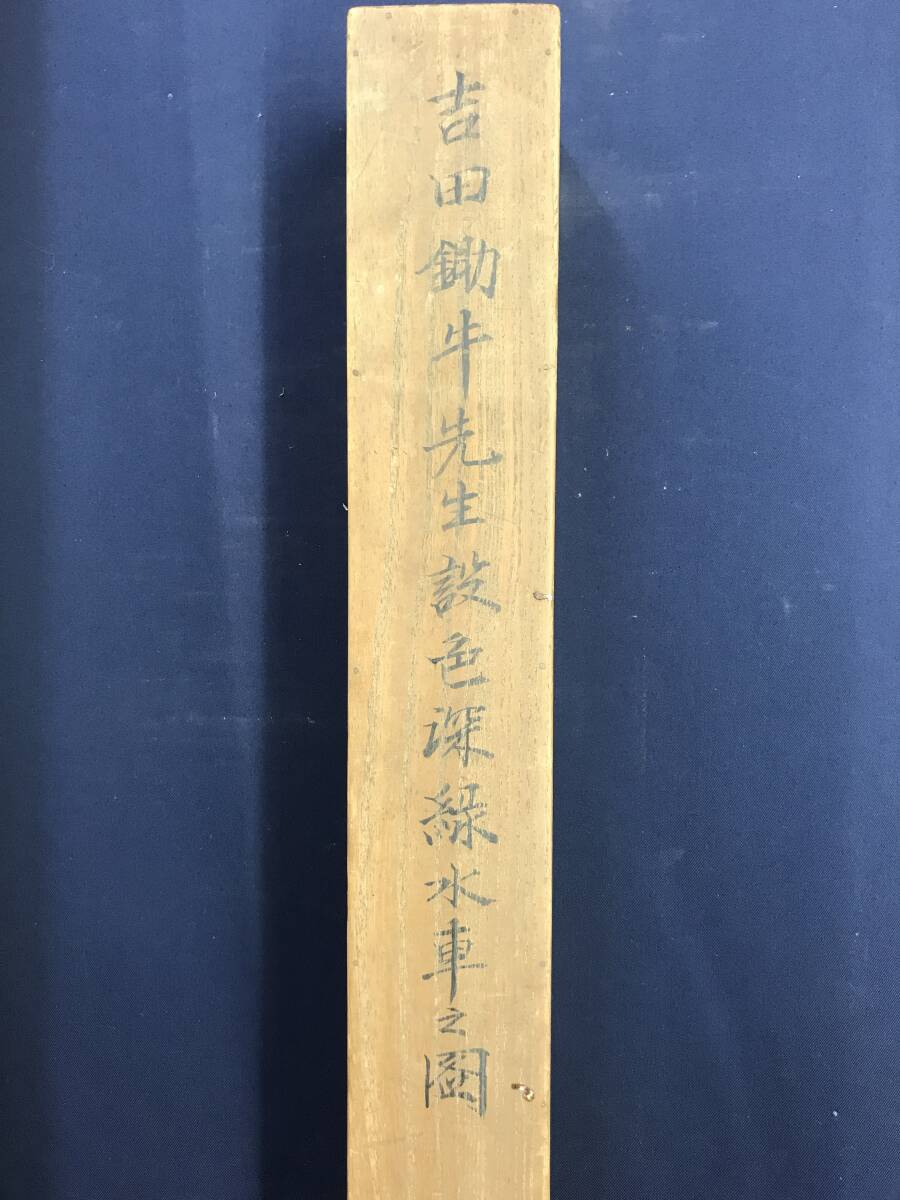 吉田鋤牛先生設色深緑水車之圖